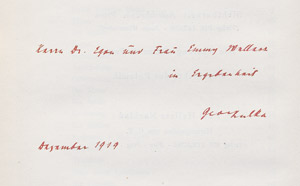 Herrn Dr. Egon und Frau Emmy Wellesz
in Ergebenheit
Dezember 1919